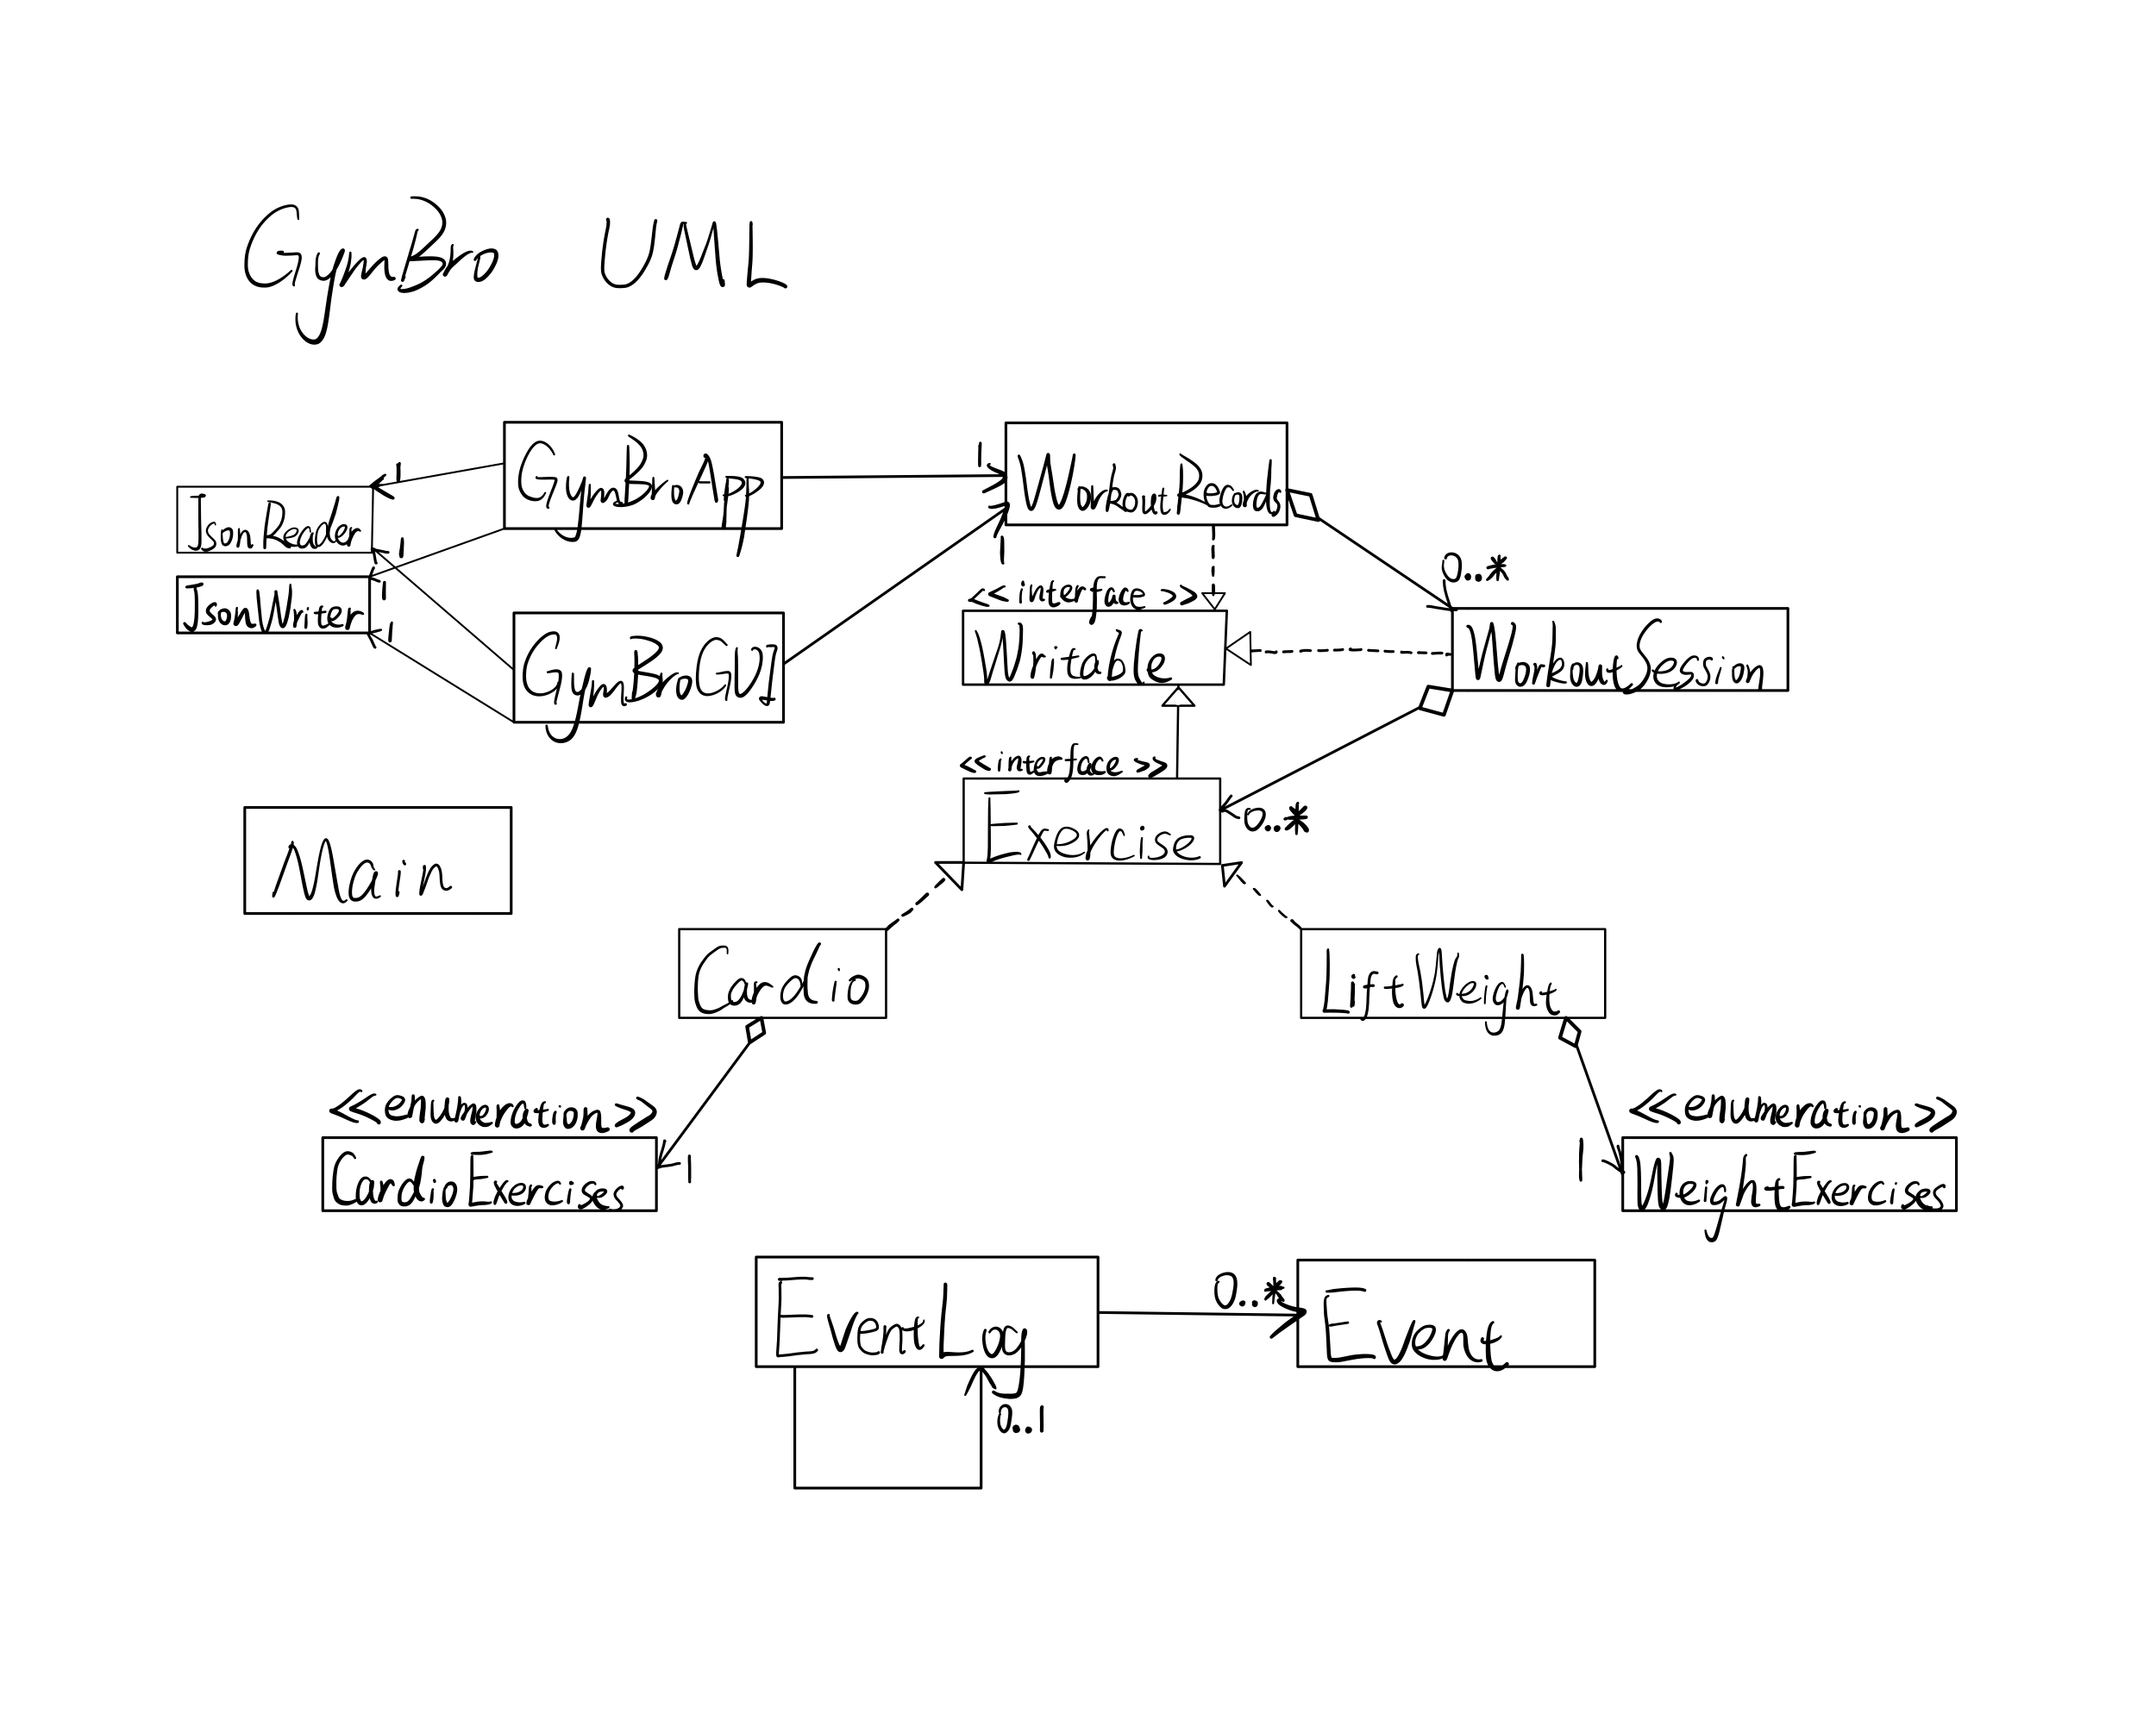 GymBro UML
GymBroApp
1
WorkoutRecords
1
JsonReader
1
1
JsonWriter
1
1
GymBroGUI
1
<interface>
Writable
0..*
WorkoutSession
<<interface>
Exercise
0..*
Main
Cardio
LiftWeight
<<enumeration>>
CardioExercises
1
<<enumeration>>
1
WeightExercises
EventLog
0..*
Event
0..1